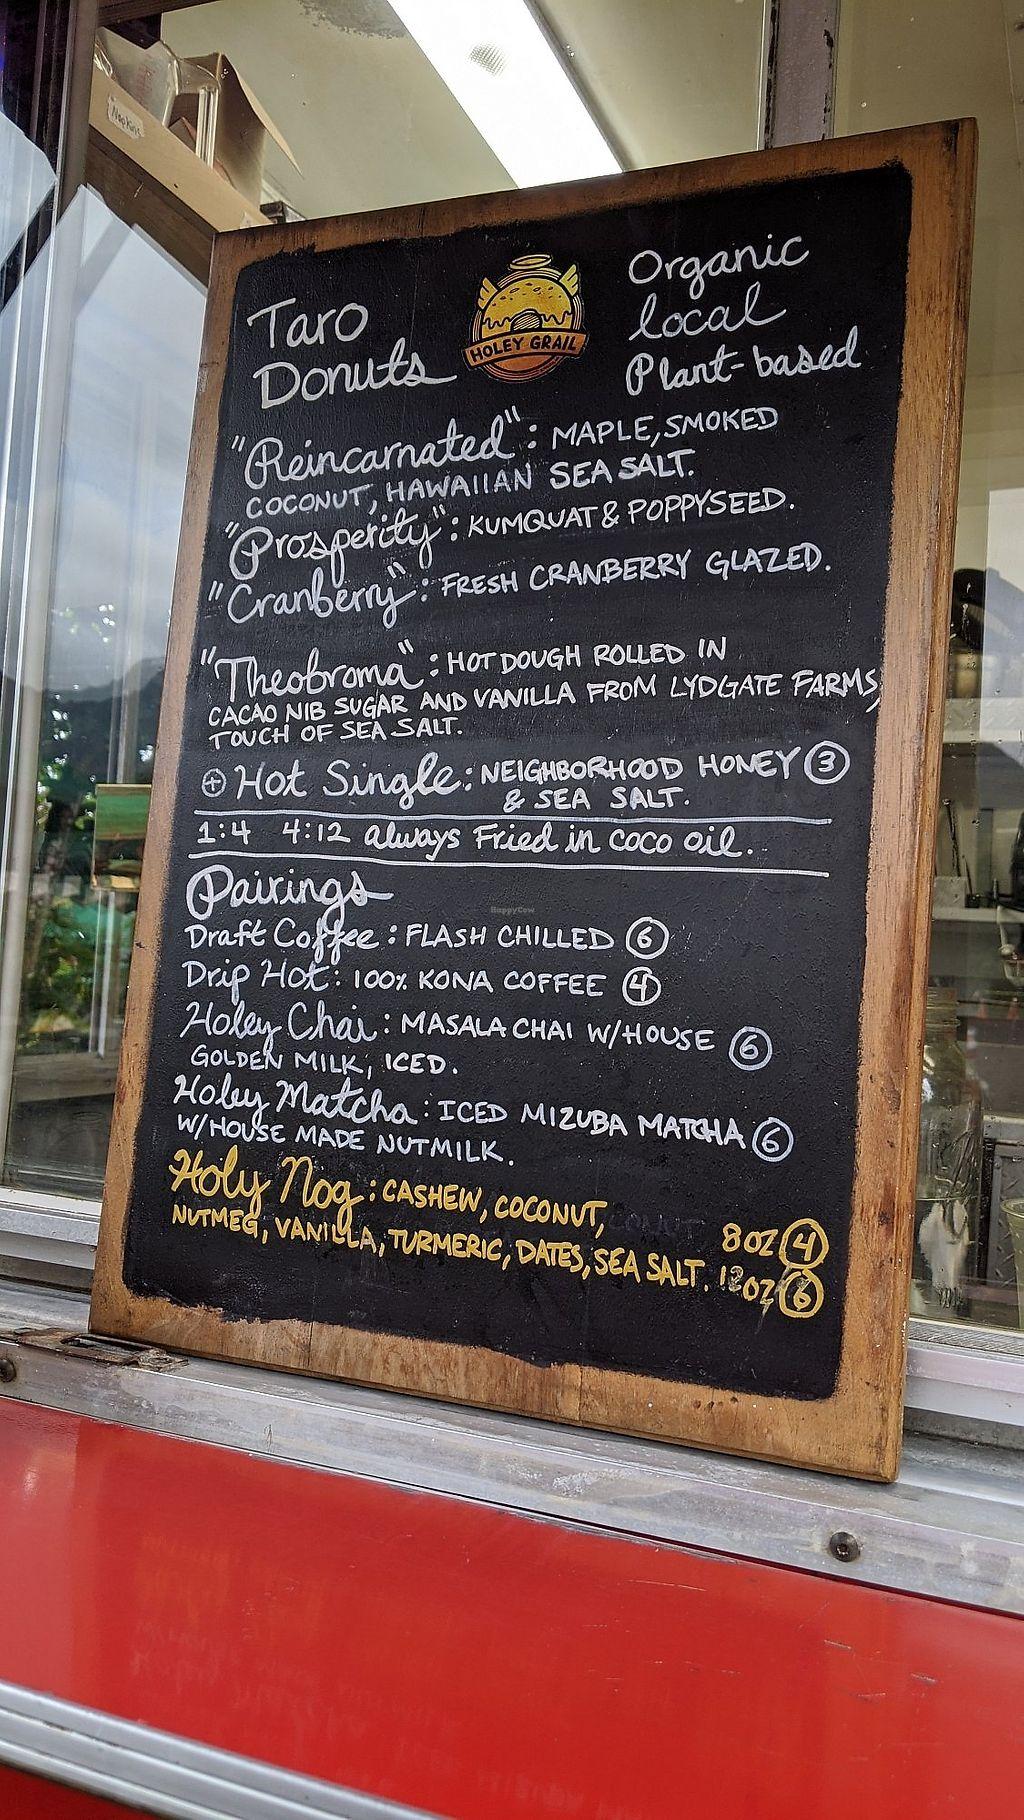 Napkins
Taro
Donuts
HOLEY GRAIL
Organic
local
Plant-based
"Reincarnated": MAPLE, SMOKED
COCONUT, HAWAIIAN SEA SALT.
"Prosperity": KUMQUAT & POPPYSEED.
"Cranberry": FRESH CRANBERRY GLAZED.
"Theobroma": HOT DOUGH ROLLED IN
CACAO NIB SUGAR AND VANILLA FROM LYDGATE FARMS,
TOUCH OF SEA SALT.
⊕ Hot Single: NEIGHBORHOOD HONEY 3
& SEA SALT.
1:4 4:12 always Fried in coco oil.
Pairings
HappyCow
Draft Coffee: FLASH CHILLED 6
Drip Hot: 100% KONA COFFEE 4
Holey Chai: MASALA CHAI W/HOUSE 6
GOLDEN MILK, ICED.
Holey Matcha: ICED MIZUBA MATCHA 6
W/HOUSE MADE NUTMILK.
Holy Nog: CASHEW, COCONUT, 8OZ 4
NUTMEG, VANILLA, TURMERIC, DATES, SEA SALT. 12OZ 6